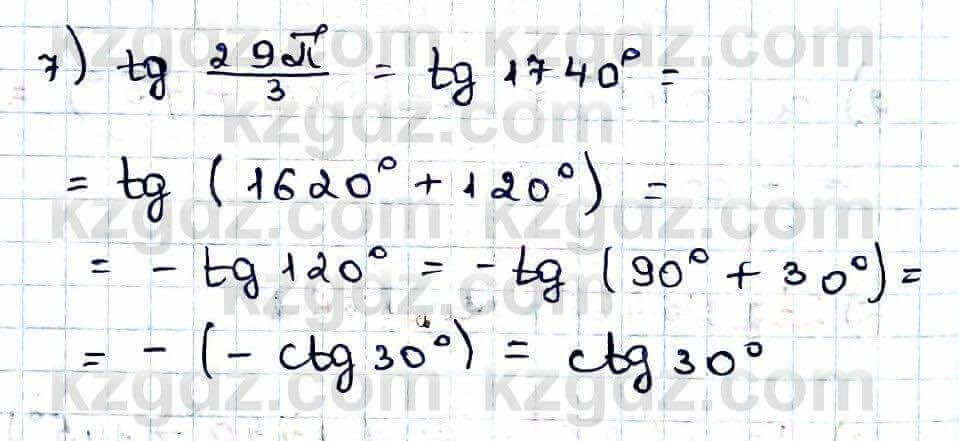 7) tg 29π/3 = tg 1740° =
= tg (1620° + 120°) =
= - tg 120° = - tg (90° + 30°) =
= - (- ctg 30°) = ctg 30°
kzgdz.com kzgdz.com
kzgdz.com
kzgdz.com kzgdz.com
kzgdz.com
kzgdz.com kzgdz.com